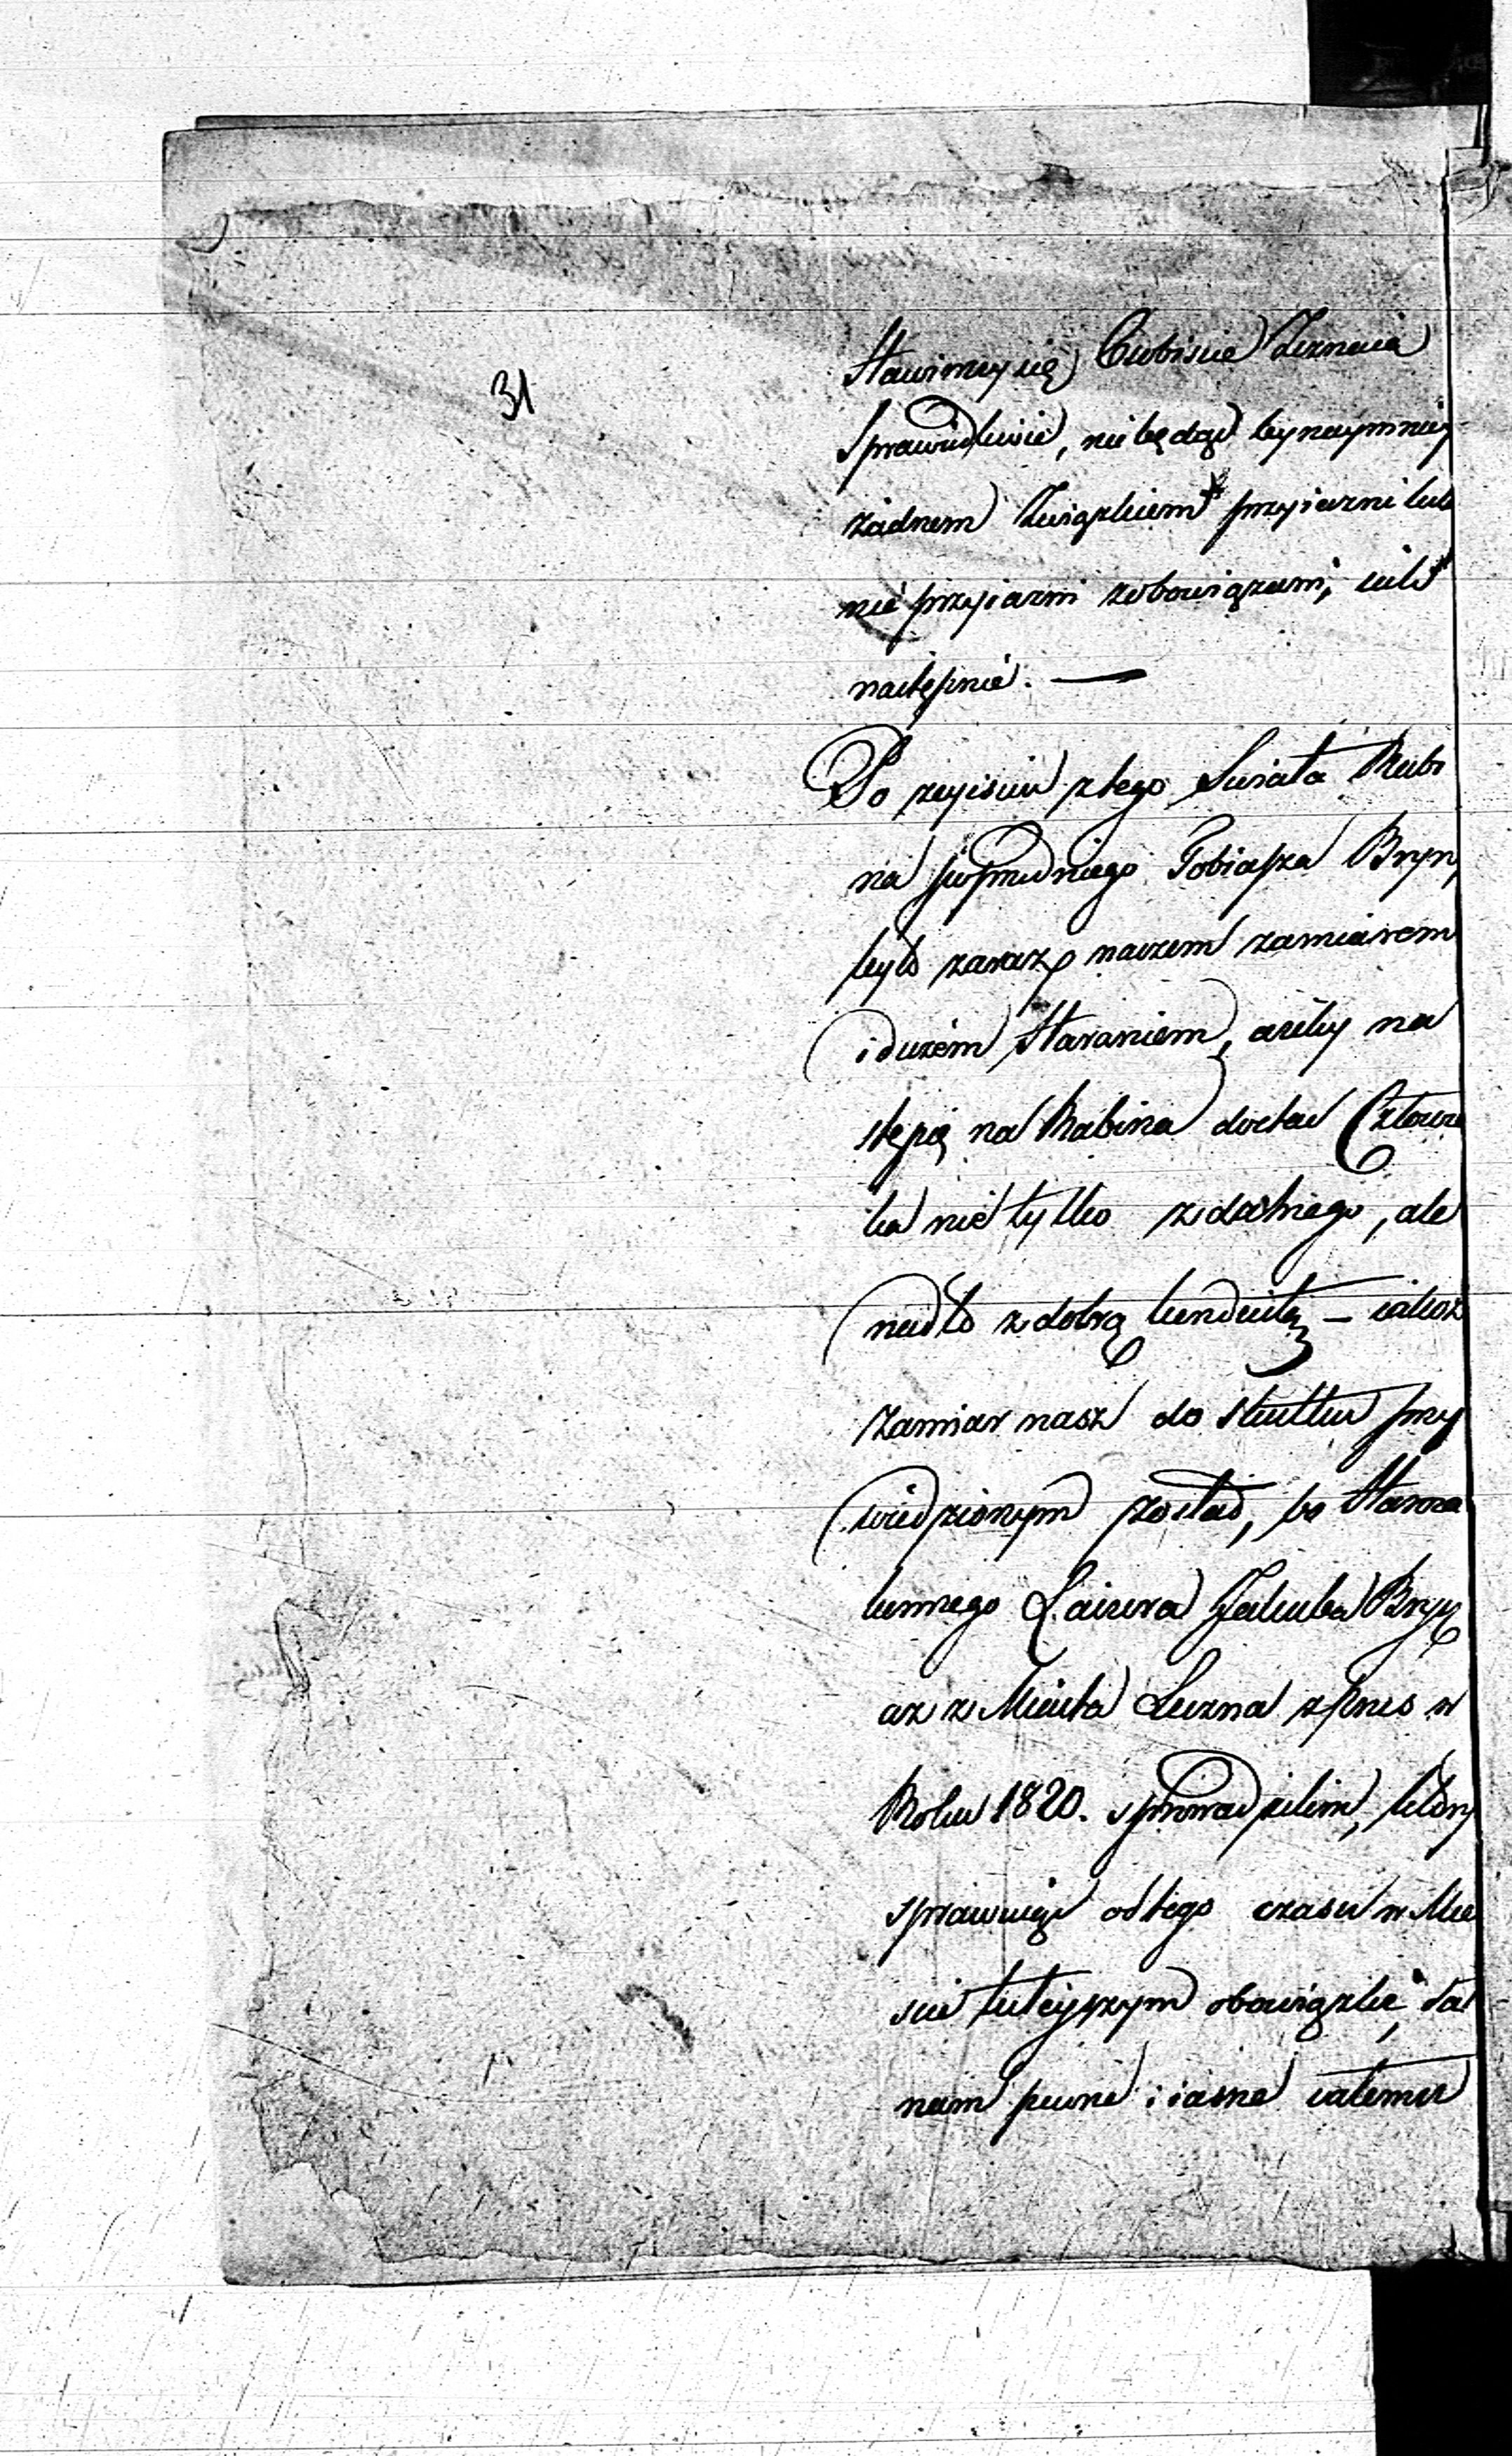 31
Stawimy się Osobiście Zeznaia
Sprawiedliwie, nie będąć bynaymniey
żadnem Związkiem przyiazni lub
nie przyiazni zobowiązani, iak
następnie. —
Po zeyściu ztego Swiata Rabi
na poprzedniego Tobiasza Bryn
było zaraz naszem zamiarem
i dużem Staraniem, ażeby na
stępcę na Rabina dostać Człowie
ka nie tylko zdolnego, ale
nadto z dobrą konduitą – iakoż
zamiar nasz do skutku przy
wiedzionym został, bo Starozа
konnego Laizera Jakuba Bryn
aż z Miasta Leczna zpnes w
Roku 1820. sprowadzilim, który
sprawuiąc od tego czasu w Mie
scie tuteyszym obowiązki, dał
nam pewne i iasne całemu